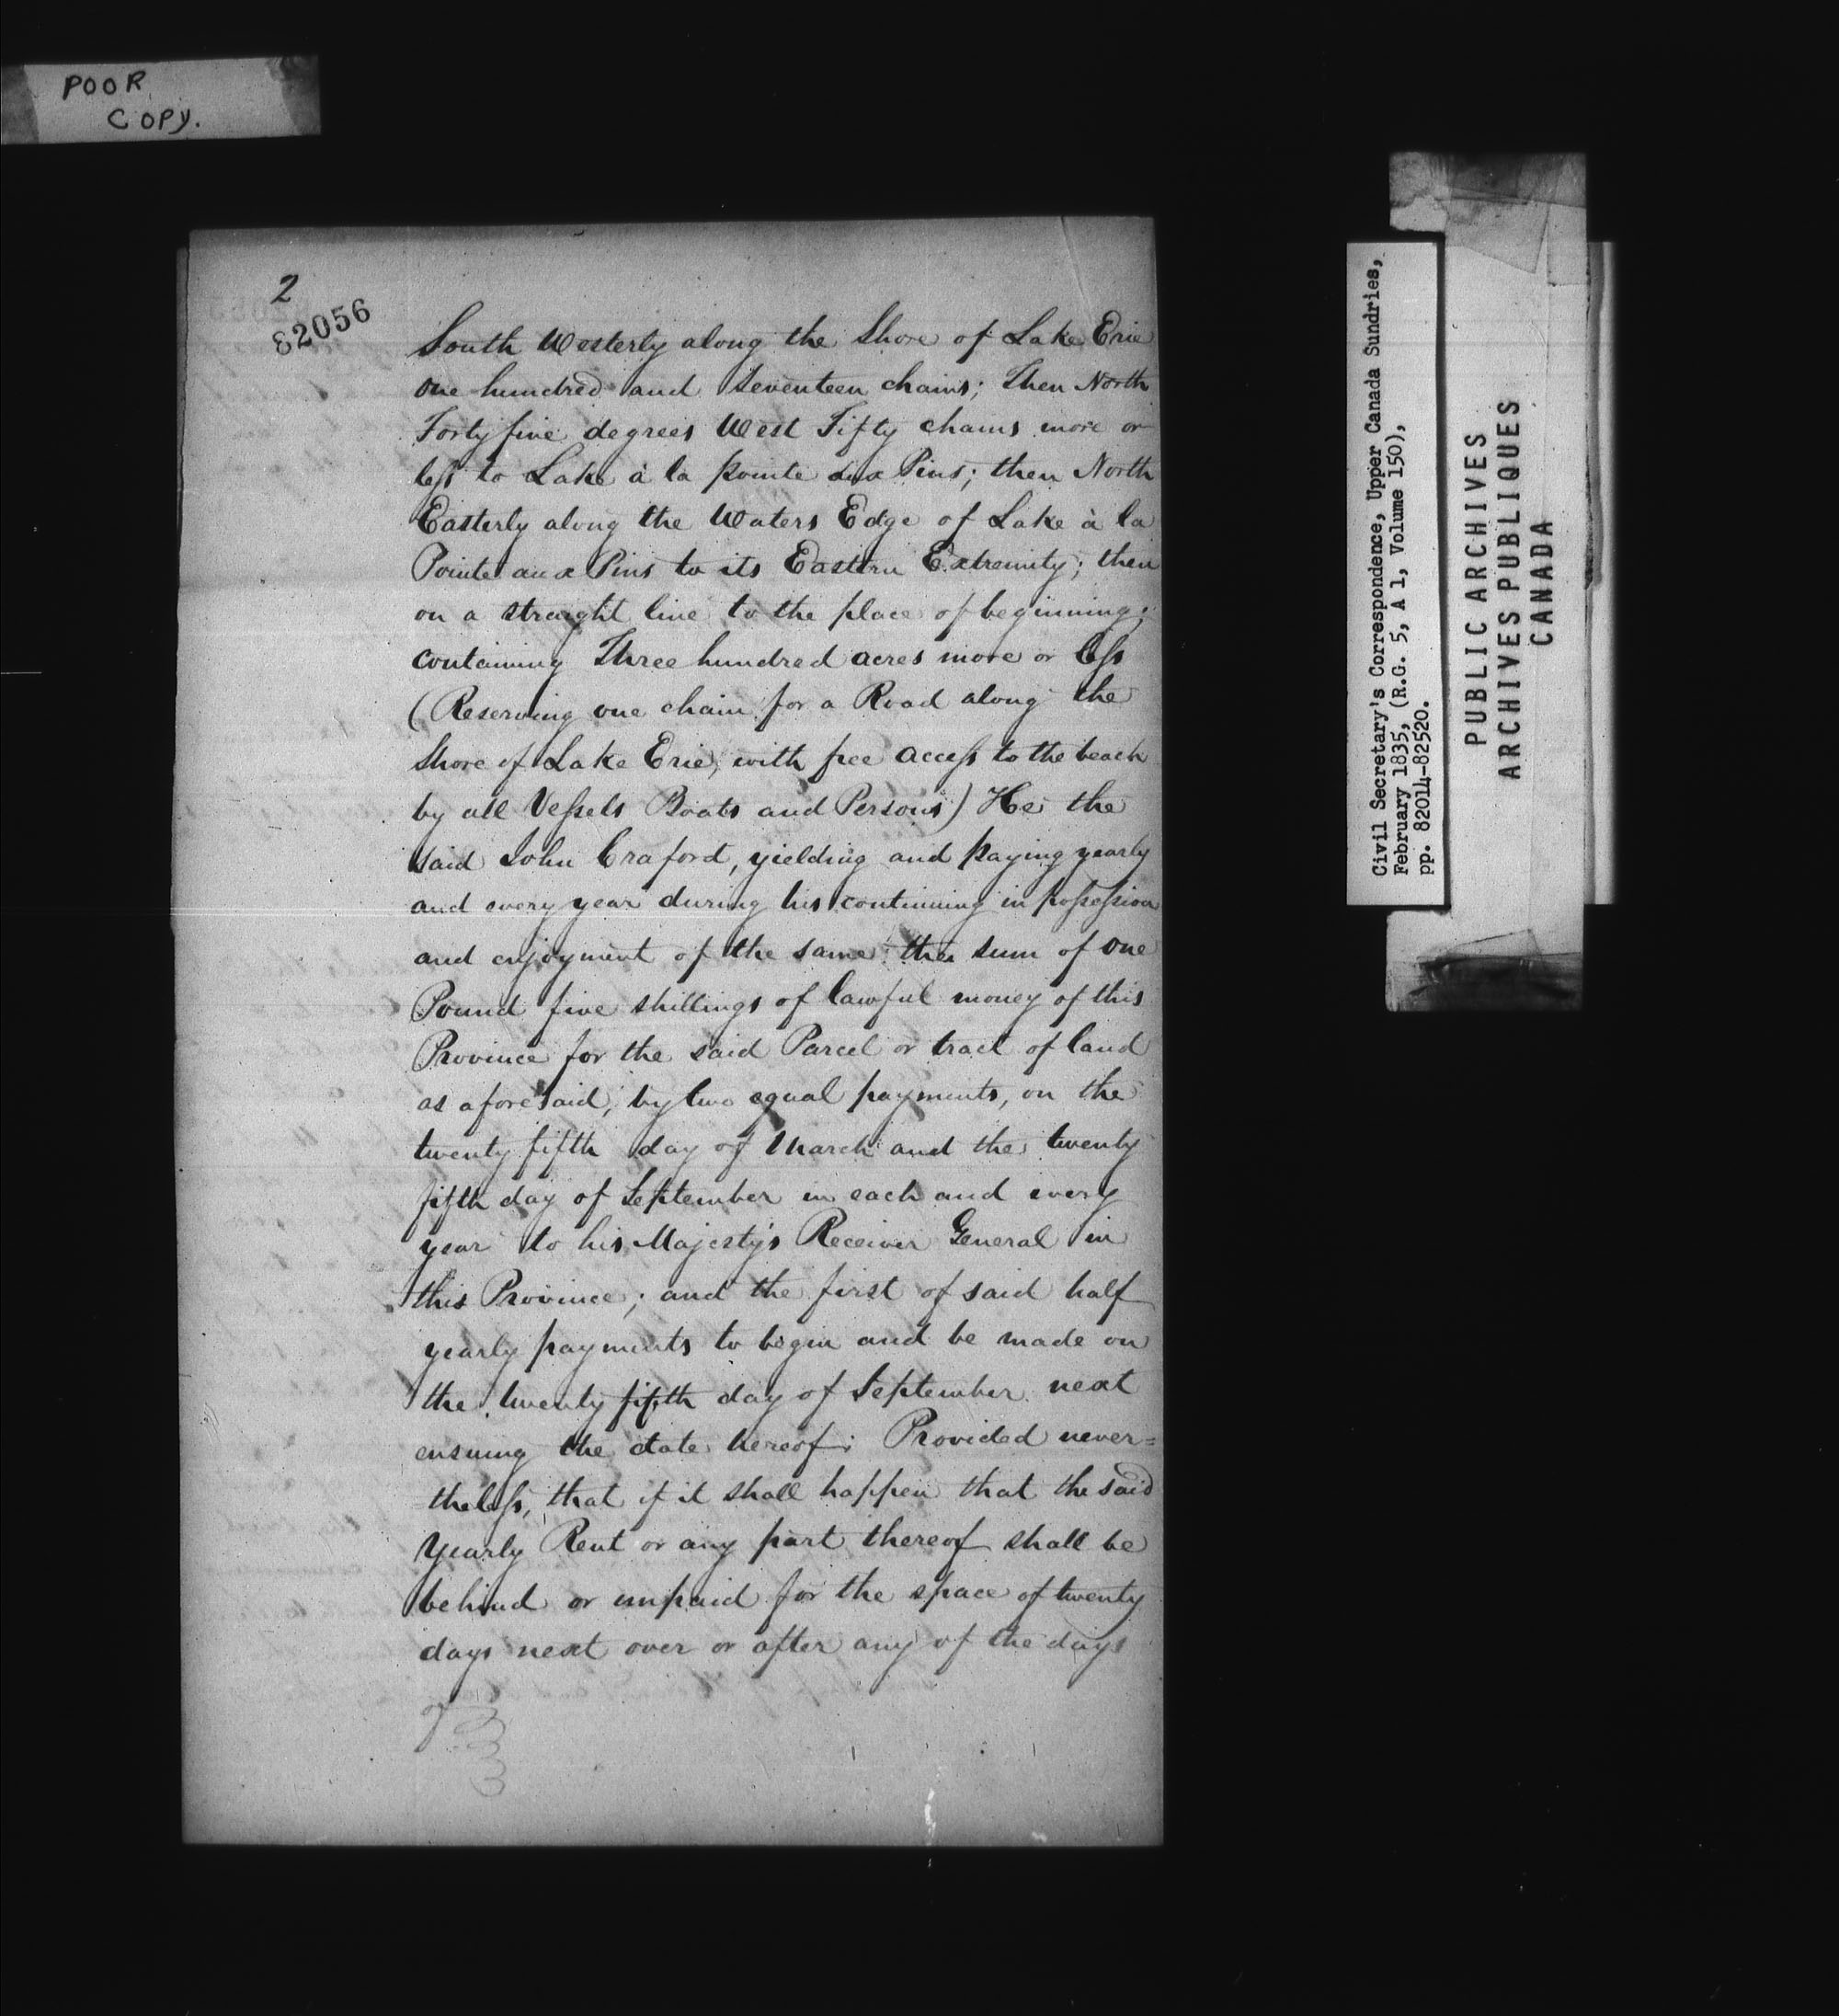 POOR
COPY.
2
82056
South Westerly along the Shore of Lake Erie
one hundred and Seventeen chains; Then North
Forty five degrees West Fifty chains more or
less to Lake à la pointe aux Pins; then North
Easterly along the Waters Edge of Lake à la
Pointe aux Pins to its Eastern Extremity; then
on a straight line to the place of beginning;
containing Three hundred acres more or less
(Reserving one chain for a Road along the
Shore of Lake Erie, with free access to the beach
by all Vessels Boats and Persons) He the
said John Craford, yielding and paying yearly
and every year during his continuing in possession
and enjoyment of the same the sum of one
Pound five shillings of lawful money of this
Province for the said Parcel or tract of land
as aforesaid, by two equal payments, on the
twenty fifth day of March and the twenty
fifth day of September in each and every
year to his Majesty's Receiver General in
this Province; and the first of said half
yearly payments to begin and be made on
the twenty fifth day of September next
ensuing the date hereof; Provided never=
theless, that if it shall happen that the said
Yearly Rent or any part thereof shall be
behind or unpaid for the space of twenty
days next over or after any of the days
of
Civil Secretary's Correspondence, Upper Canada Sundries,
February 1835, (R.G. 5, A 1, Volume 150),
pp. 82014-82520.
PUBLIC ARCHIVES
ARCHIVES PUBLIQUES
CANADA